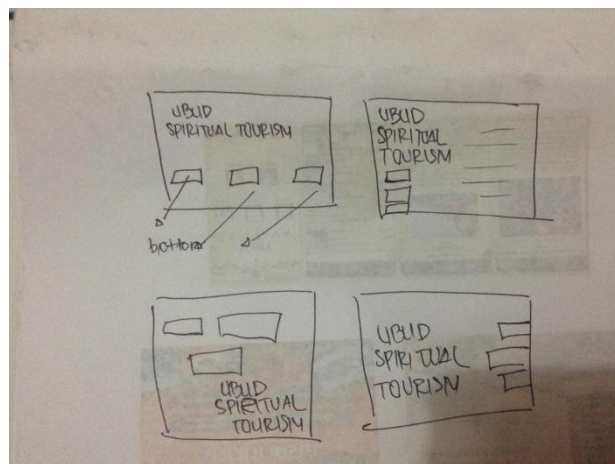 UBUD
SPIRITUAL TOURISM
bottom
UBUD
SPIRITUAL
TOURISM
UBUD
SPIRITUAL
TOURISM
UBUD
SPIRITUAL
TOURISM